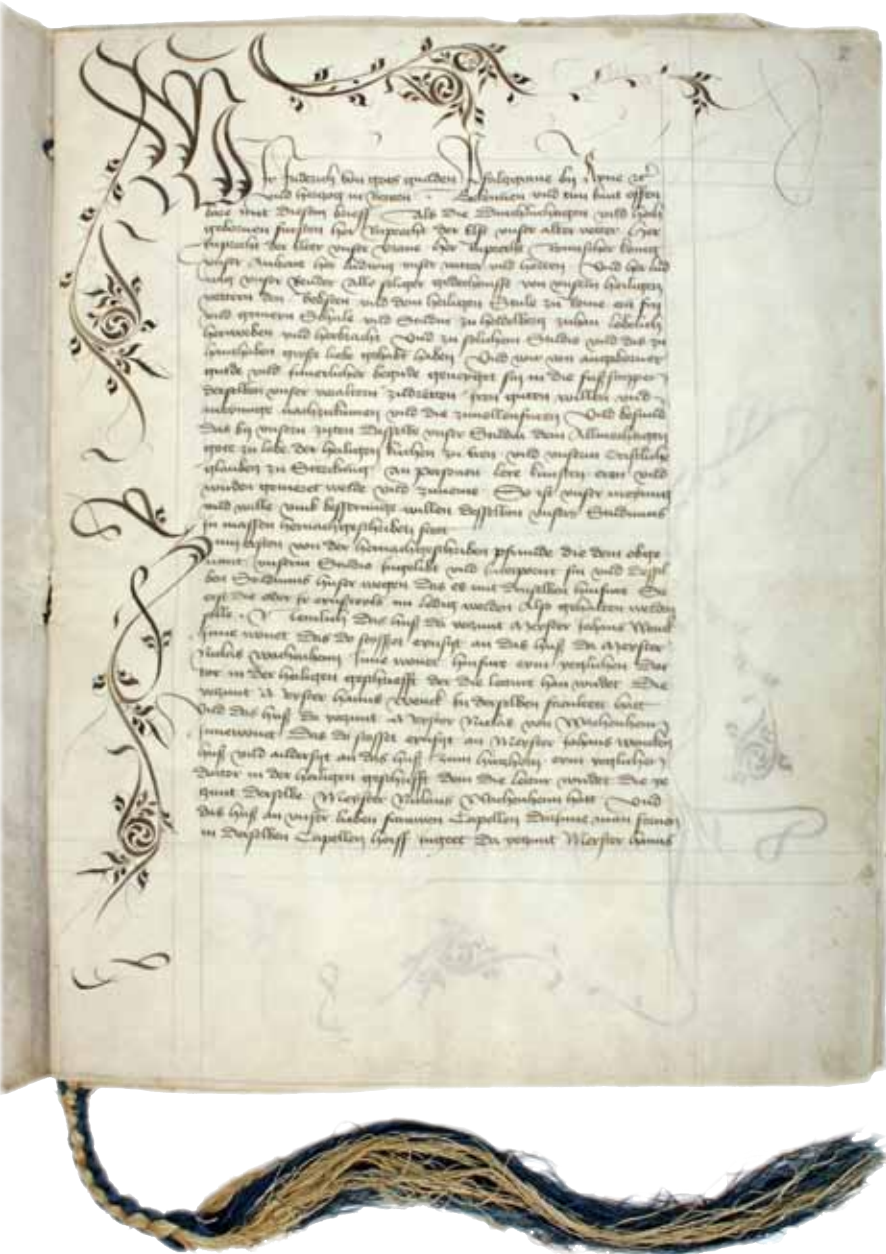 Wir Friderich von gots gnaden Pfaltzgraue by Ryne etc
vnd hertzog in Beyern Bekennen vnd tun kunt offen
bare mit diesem brieff Als die durchluchtigen vnd hoch
gebornen fursten her Ruprecht der Elst vnser alter vetter her
Ruprecht der vnser her Ruprecht Romischer konig
vnser Anhere her Ludwig vnser vatter vnd herren Vnd her lud
wig vnser Bruder Alle seliger gedechtnisse von vnsern heiligen
vettern den Bebsten vnd dem heiligen Stule zu Rome ein fry
vnd gemeyn Schule vnd Studium zu heidelberg zuhan loblich
herworben vnd herbracht Vnd zu solichem Studio vnd das zu
hanthaben große liebe gehabt haben Vnd wir von angeborner
gude vnd innerlicher begirde geneyget sin in die fußstappen
derselben vnser voraltern zudretten iren guten willen vnd
meynunge nachzukomen vnd die zuuollenfuren Vnd
das by vnsern zyten dasselbe vnser Studium dem Allmechtigen
gote zu lobe der heiligen kirchen zu eren vnd vnserm cristliche
glauben zu Sterckung an personen lere kunsten eren vnd
wirden gemeret werde vnd zuneme So ist vnser meynung
vnd wille vmb besserunge willen desselben vnsers Studiums
in massen hernachgeschriben stett
Zum ersten von der hernachgeschriben pfrunde die dem obge
nant vnserm Studio ingelibt vnd incorporiert sin vnd dessel
ben Studiums huser wegen das es mit denselben hinfure So
erst die oder ir eynsteyls ledig werden Also gehalten werden
solle Nemlich das huß da yetzunt Meister Johans Wenck
inne wonet das do stosset eynsyt an das huß da Meister
Niclas Wachenheim Inne wonet hinfure eym yeglichen Doc
tor in der heiligen geschriefft der die lectur han wurdet Die
yetzunt Meister Hanns Wenck by derselben facultet hatt
Vnd das huß da yetzunt Meyster Niclas von Wachenheim
innewonet Das do stosset eynsyt an Meyster Johans Wencken
huß vnd andersyt an das huß zum hirtzhorn eym yeglichen
doctor in der heiligen geschriefft dem die lectur wurdet die ye
tzunt derselbe Meyster Niclaus Wachenheim hatt Vnd
das huß an vnser lieben frauwen Capellen
in derselben Capellen hoiff inget da yetzunt Meyster Hanns